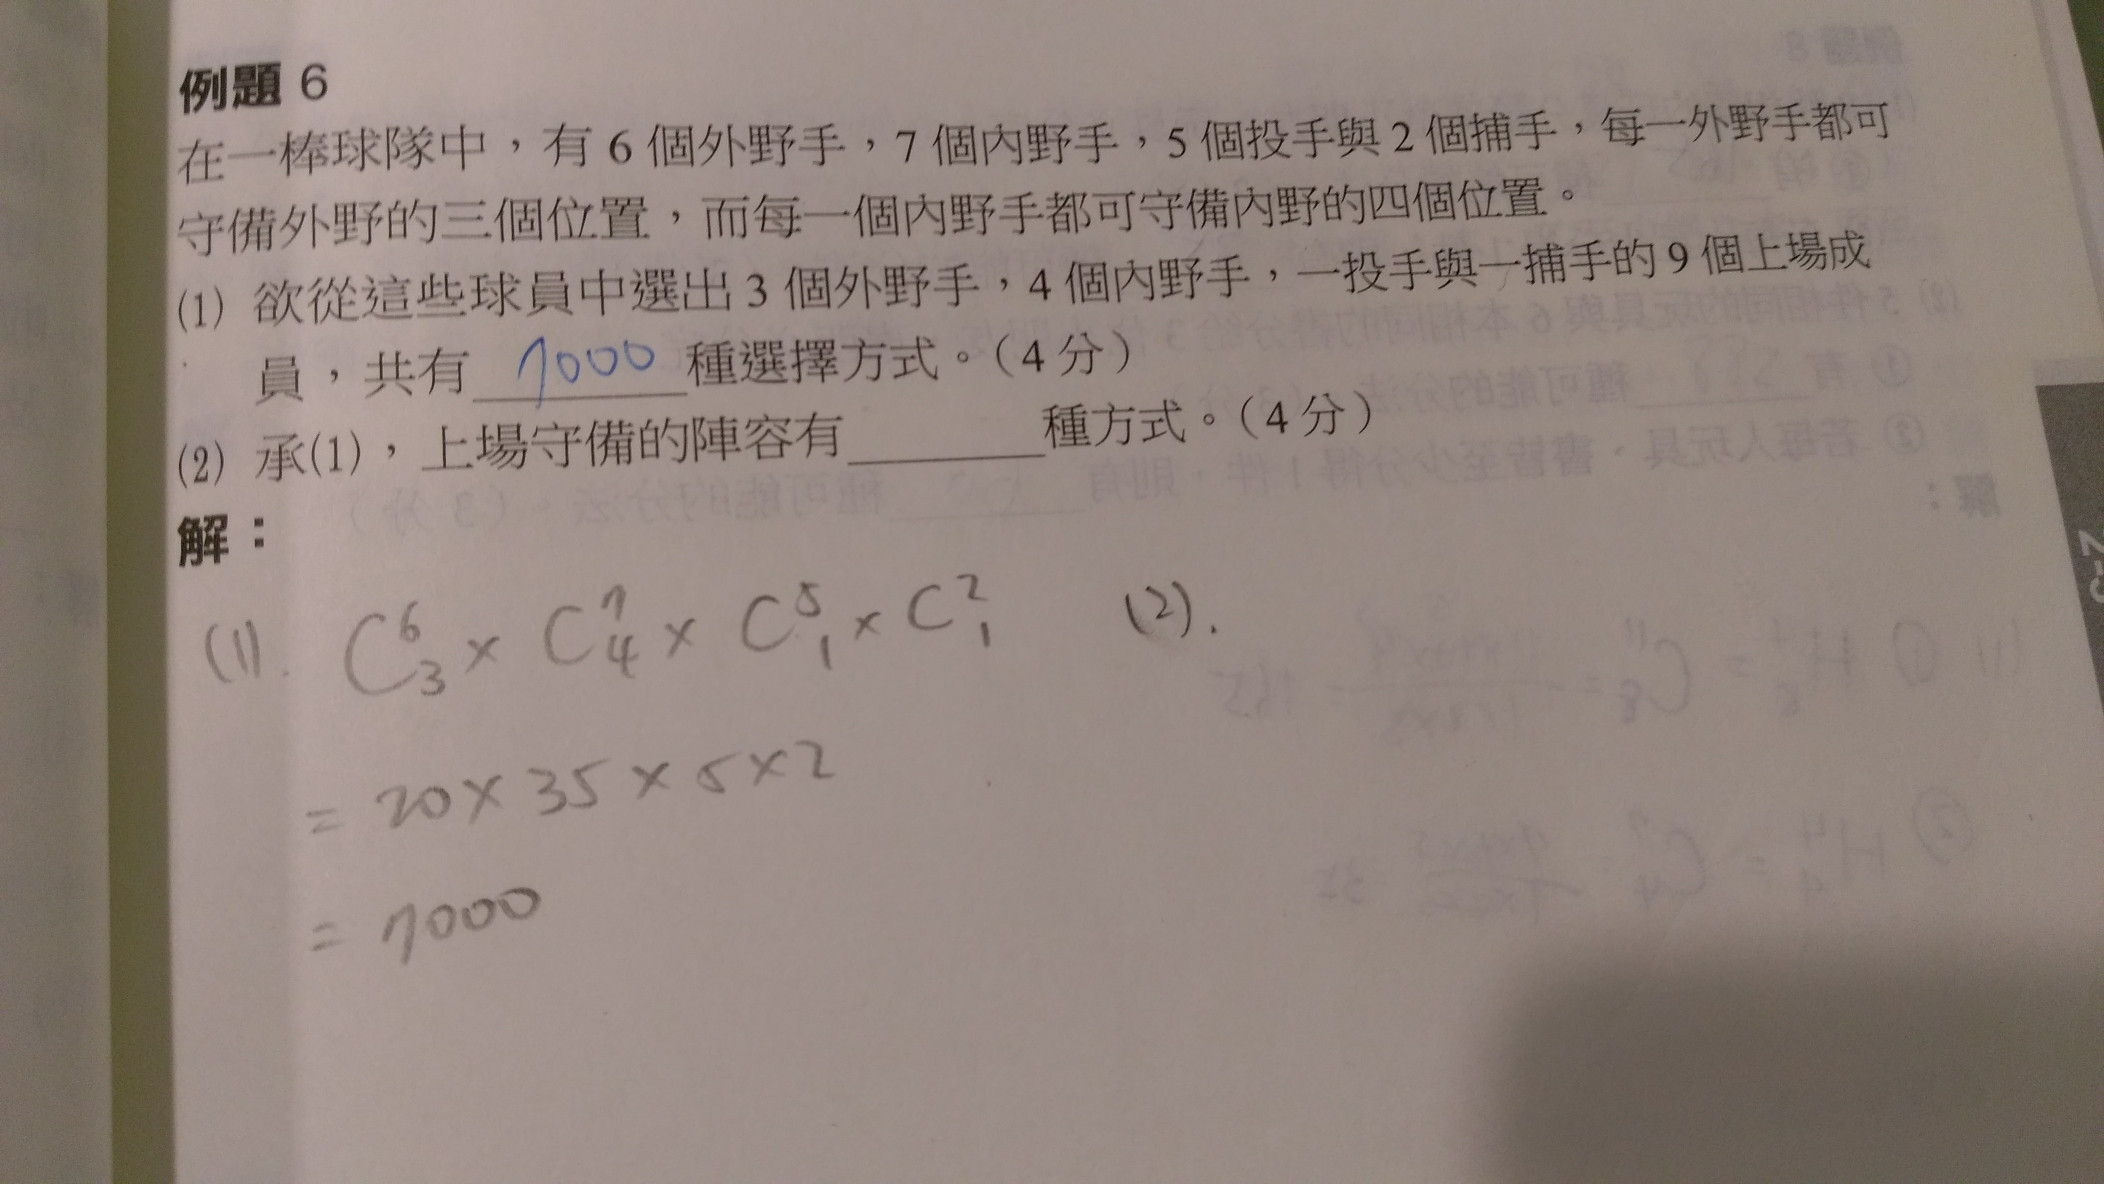 例題 6
在一棒球隊中，有 6 個外野手，7 個內野手，5 個投手與 2 個捕手，每一外野手都可
守備外野的三個位置，而每一個內野手都可守備內野的四個位置。
(1) 欲從這些球員中選出 3 個外野手，4 個內野手，一投手與一捕手的 9 個上場成
員，共有 7000 種選擇方式。（4 分）
(2) 承(1)，上場守備的陣容有______種方式。（4 分）
解：
(1). C⁶₃ × C⁷₄ × C⁵₁ × C²₁ (2).
= 20 × 35 × 5 × 2
= 7000